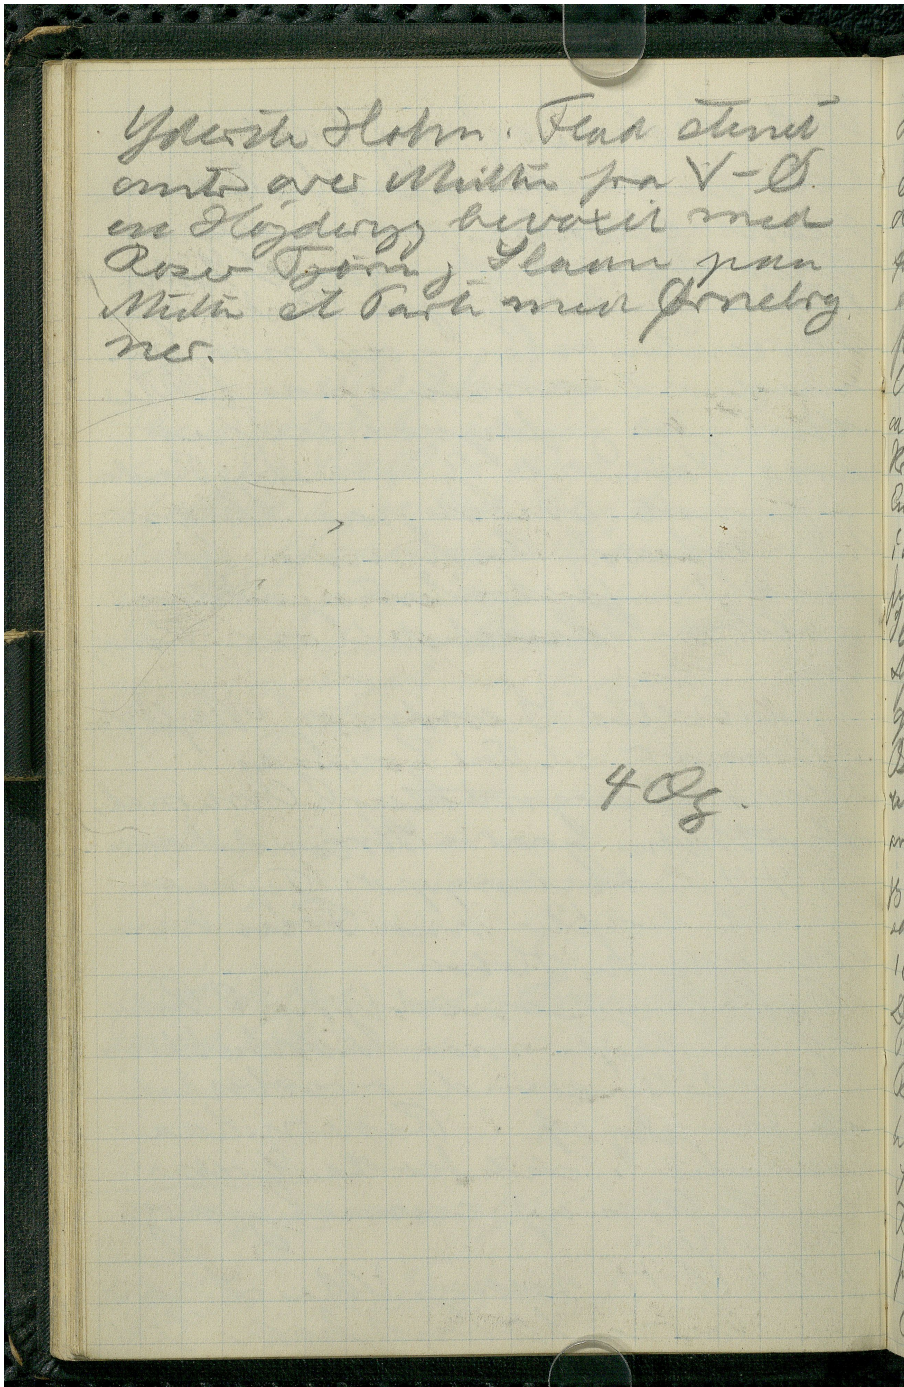 Yderste Holm. Flad stenet
omtr over Midten fra V-Ø.
en Højderyg bevoxet med
Roser Tjørn, Slaaen paa
Midten et Parti med Ørnebreg
ner.
4 Og.